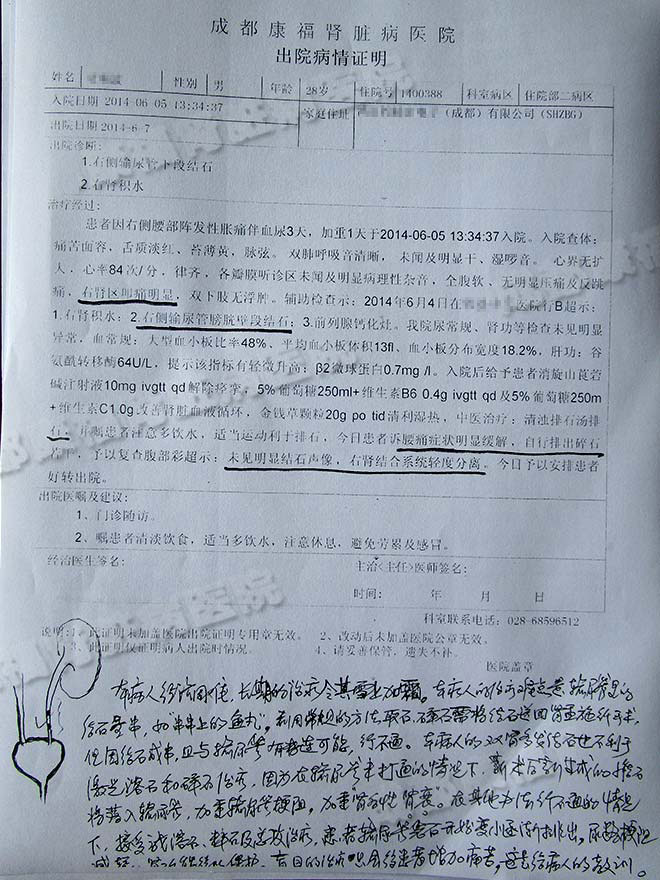 成都康福肾脏病医院
出院病情证明
姓名 性别 男 年龄 28岁 住院号 1400388 科室病区 住院部二病区
入院日期 2014-06-05 13:34:37 家庭住址 (成都)有限公司(SHZBG)
出院日期 2014-6-7
出院诊断:
1.右侧输尿管下段结石
2.右肾积水
治疗经过:
患者因右侧腰部阵发性胀痛伴血尿3天，加重1天于2014-06-05 13:34:37入院。入院查体:
痛苦面容，舌质淡红、苔薄黄，脉弦。双肺呼吸音清晰，未闻及明显干、湿啰音。心界无扩
大，心率84次/分，律齐，各瓣膜听诊区未闻及明显病理性杂音，全腹软、无明显压痛及反跳
痛，右肾区叩痛明显，双下肢无浮肿。辅助检查示: 2014年6月4日在 医院行B超示:
1.右肾积水; 2.右侧输尿管膀胱壁段结石; 3.前列腺钙化灶。我院尿常规、肾功等检查未见明显
异常，血常规: 大型血小板比率48%、平均血小板体积13fl、血小板分布宽度18.2%，肝功: 谷
氨酰转移酶64U/L，提示该指标有轻微升高; β2微球蛋白0.7mg /l。入院后给予患者消旋山莨菪
碱注射液10mg ivgtt qd 解除痉挛，5%葡萄糖250ml+维生素B6 0.4g ivgtt qd 及5%葡萄糖250m
+维生素C1.0g 改善肾脏血液循环，金钱草颗粒20g po tid 清利湿热，中医治疗: 清浊排石汤排
石，并嘱患者注意多饮水，适当运动利于排石，今日患者诉腰痛症状明显缓解，自行排出碎石
若干，予以复查腹部彩超示: 未见明显结石声像，右肾结合系统轻度分离。今日予以安排患者
好转出院。
出院医嘱及建议:
1、门诊随访。
2、嘱患者清淡饮食，适当多饮水，注意休息，避免劳累及感冒。
经治医生签名: 主治<主任>医师签名:
时间: 年 月 日
科室联系电话: 028-68596512
说明: 1、此证明未加盖医院出院证明专用章无效。 2、改动后未加盖医院公章无效。
3、此证明仅证明病人出院时情况。 4、请妥善保管，遗失不补。
医院盖章
本病人经济困难，长期的治疗令其雪上加霜。本病人的治疗难点是输尿管里的
结石成串，如串串上的鱼丸。利用常规的方法取石、碎石需将结石送回肾盂施行手术，
但因结石成串，且与输尿管有粘连可能，行不通。本病人的双肾多发结石也不利于
激光溶石和碎石治疗，因为在输尿管未打通的情况下，
将落入输尿管，加重输尿管梗阻，加重肾衰。在其他方法行不通的情况
下，接受我溶石、排石及总攻治疗，患者输尿管结石开始变小逐渐排出，尿路梗阻
减轻， 保护。盲目的治疗只会给患者增加痛苦，这是给病人的教训。